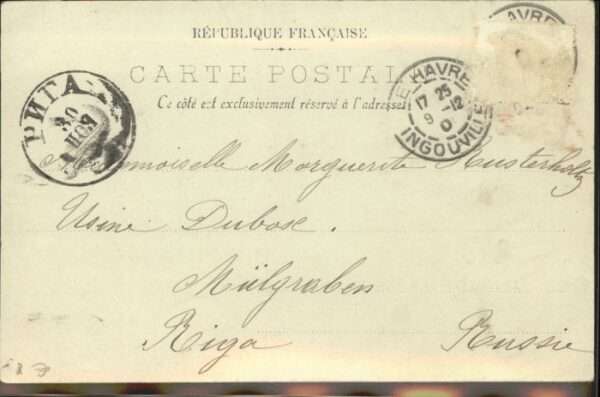 RÉPUBLIQUE FRANÇAISE
CARTE POSTAL
Ce côté est exclusivement réservé à l'adresse
РИГА
30
НОЯ
LE HAVRE
17 25
9 12
0
INGOUVILLE
HAVRE
Mademoiselle Marguerite Husterholtz
Usine Dubosc.
Mülgraben
Riga Russie